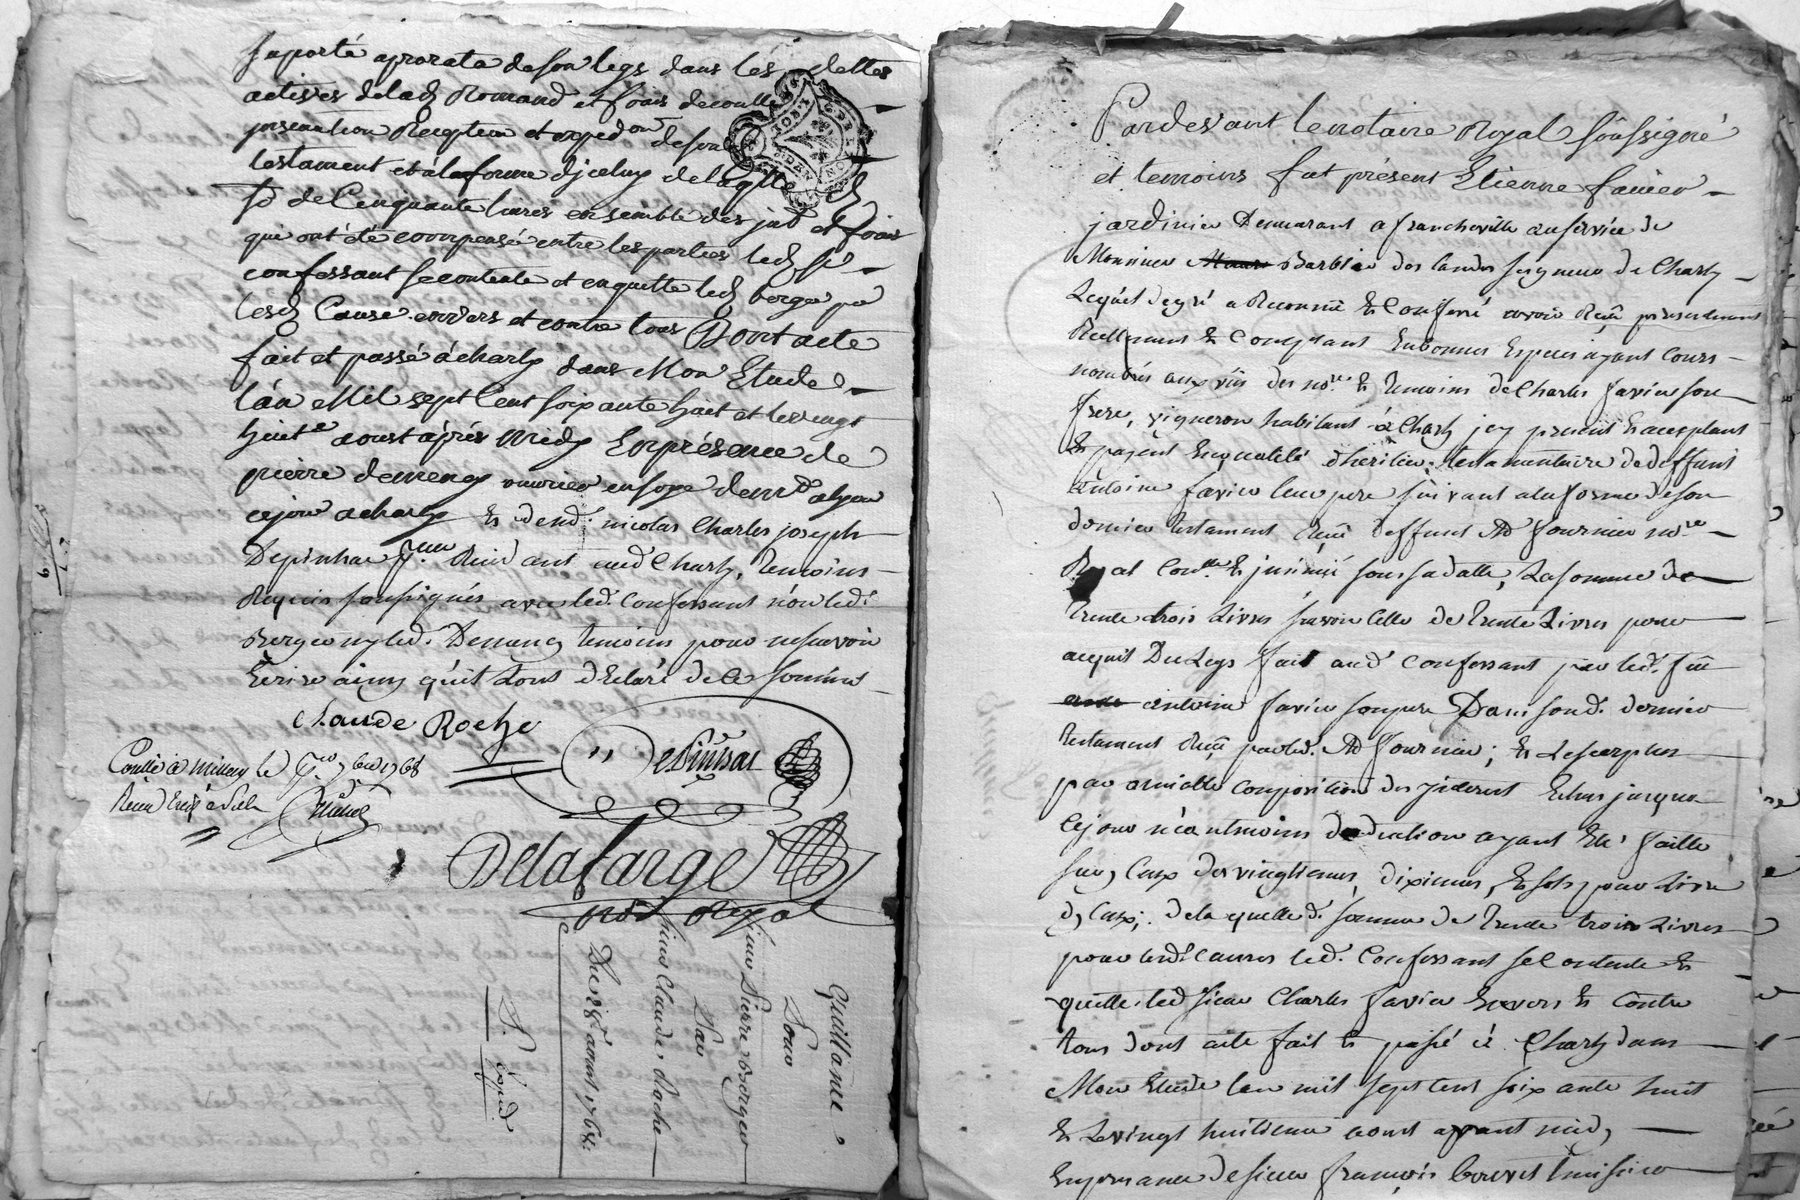 saporté aprorata deson legs dans les dettes
actives delad Romand et frais decontlle
insinuation Reception et expedon deson
testament et àlaforme d'jceluy delaqlle d
se de Cinquante livres ensemble des jnt et frais
qui ont été compensé entre lesparties led sr
confessant secontente et enquitte led berger pr
lesd Cause envers et contre tous Dont acte
fait et passé àcharly dans Mon Etude
lán Mil sept Cent soixante huit et levingt
huite aoust aprés Midy Enprésence de
pierre demeney ouvrier ensoye demrt alyon
cejour acharly Et de nicolas Charles joseph
Depinhac Resid ant aud Charly, temoins
Requis soussignés avec led. Confessant nonled.
Berger nyled. Demeney temoins pour nesavoir
Ecrire ainsy quíls sont déclaré de ce sommés
Claude Roche
DePinhac
Contlé à Millery le 1er 7bre 1768
Recu
Delafarge
nore Royal
Quittance
Pour
sieur Pierre Berger
Par
sieur Claude Roche
Du 28e aoust 1768.
Expéd.
Pardevant lenotaire Royal soûssigné
et temoins fut présent Etienne favier
jardinier Demeurant a francheville auservice de
Monsieur Barbier des landes seigneur de Charly
Lequel degré a Reconnu Et Confessé avoir Reçû presentement
Reellement Et Comptant Enbonnes Especes ayant Cours
nombrés aux vûs des nore Et temoins de Charles favier son
frere, vigneron habitant à Charly jcy present Et acceptant
Et payant Enqualité d'heritier testamentaire dedeffunt
Antoine favier leur pere suivant alaforme deson
dernier testament Reçû deffunt Me fournier nore
Royal Contlle Et jnsinué soussadatte, La somme de
trente trois Livres savoir Celle de trente Livres pour
acquit Du Legs fait aud Confessant par led. feu
antoine favier sonpere Dans sond. dernier
testament Reçû parled. Me fournier; Et Lesurplus
par amiable Composition des jnterest Echus jusqua
cejour néantmoins deduction ayant Eté faitte
sur Ceux des vingtiemes, dixiemes, Et sols pour Livre
d'jceux; de la quelle d. somme de trente trois Livres
pour lesd. Causes led. Confessant se Contente Et
quitte led sieur Charles favier Envers Et Contre
tous dont acte fait Et passé à Charly dans
Mon Etude lan mil sept cent soix ante huit
Et Levingt huitieme aoust avant midy,
Enpresence desieur françois bouvet huissier